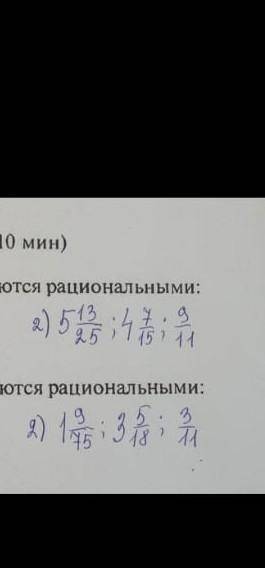 10 мин)
ются рациональными:
2) 5 13/25 ; 4 7/15 ; 9/11
ются рациональными:
2) 1 9/75 ; 3 5/18 ; 3/11